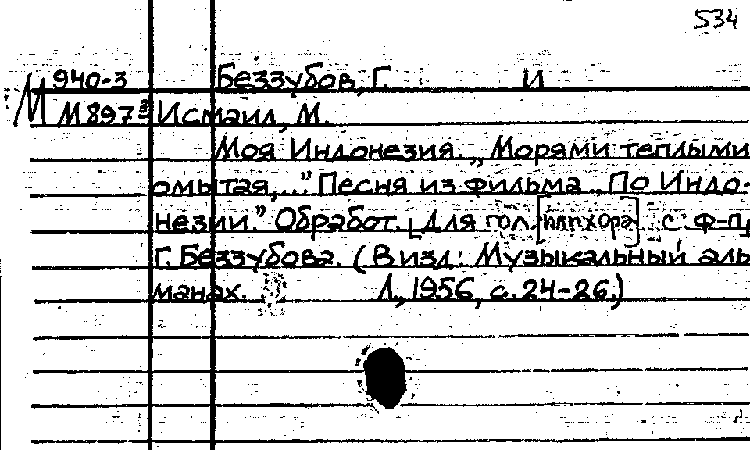 534
М 940-3 Беззубов, Г. И
М897 Исмаил, М.
Моя Индонезия. „Морями теплыми
омытая,..." Песня из фильма „По Индо-
незии." Обработ. Для гол. [или хора] с ф-п,
Г. Беззубова. (В изд: Музыкальный аль
манах. Л., 1956, с. 24-26.)